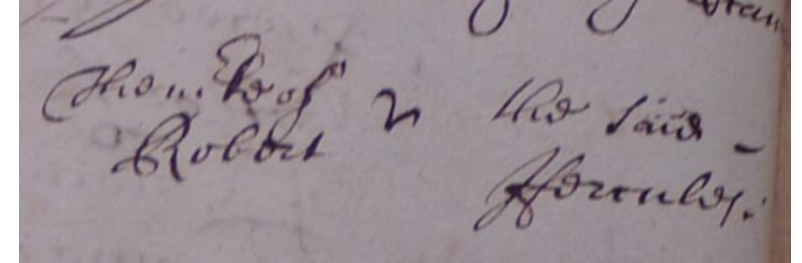 Thom v the said -
Robert Hercules.